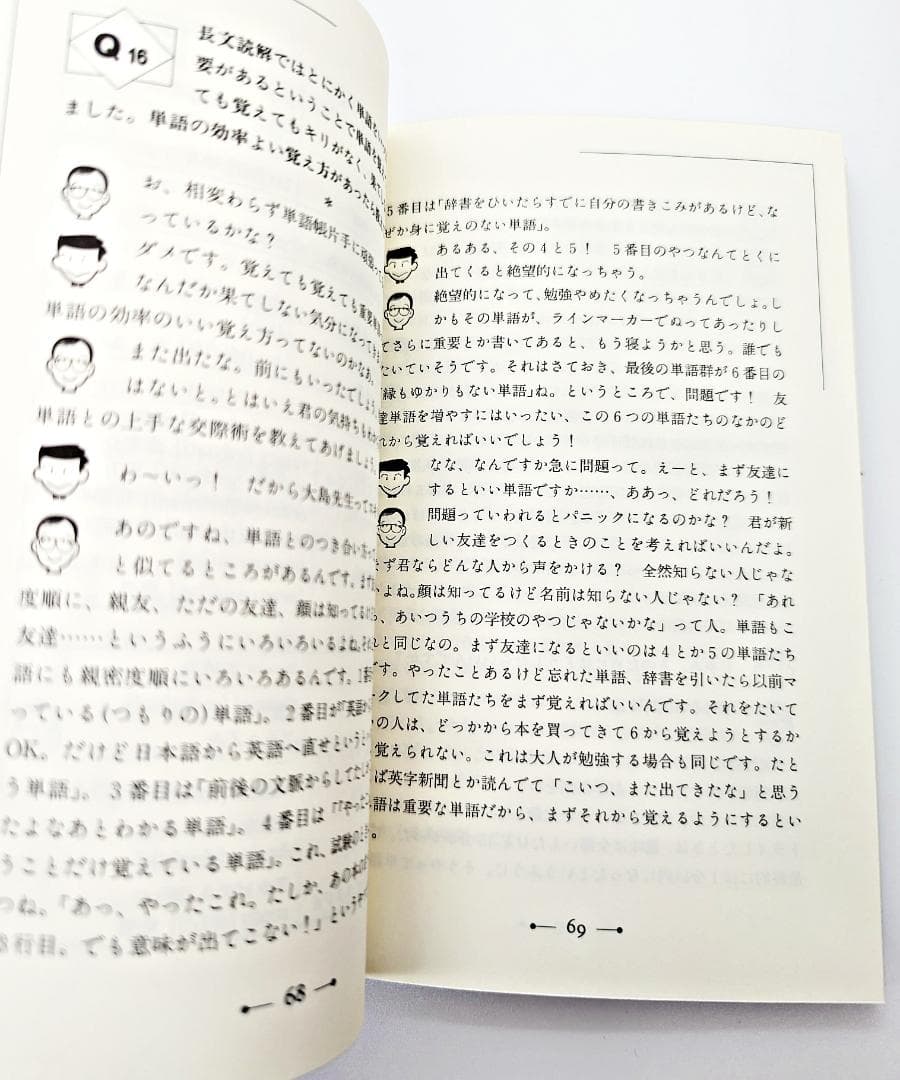 Q 16
長文読解ではとにかく単語
要があるということで単語
ても覚えてもキリがなく、
ました。単語の効率よい覚え方があったら
*
お、相変わらず単語帳片手に頑張って
っているかな?
ダメです。覚えても覚えても
なんだか果てしない気分になって
単語の効率のいい覚え方ってないのかなあ。
また出たな。前にもいったでしょう
はないと。とはいえ君の気持ちも
単語との上手な交際術を教えてあげましょう。
わ〜いっ! だから大島先生って
あのですね、単語とのつき合い
と似てるところがあるんです。まず
度順に、親友、ただの友達、顔は知ってるけど
友達……というふうにいろいろいるよね。
語にも親密度順にいろいろあるんです。1番
っている(つもりの)単語」。2番目が「英語から
OK。だけど日本語から英語へ直せという
う単語」。3番目は「前後の文脈からして
たよなあとわかる単語」。4番目は「「やった
うことだけ覚えている単語」。これ、試験の
つね。「あっ、やったこれ。たしか、あの本の
行目。でも意味が出てこない!」という
68
5番目は「辞書をひいたらすでに自分の書きこみがあるけど、な
ぜか身に覚えのない単語」。
あるある、その4と5! 5番目のやつなんてとくに
出てくると絶望的になっちゃう。
絶望的になって、勉強やめたくなっちゃうんでしょ。し
かもその単語が、ラインマーカーでぬってあったりし
てさらに重要とか書いてあると、もう寝ようかと思う。誰でも
たいていそうです。それはさておき、最後の単語群が6番目の
縁もゆかりもない単語」ね。というところで、問題です! 友
達単語を増やすにはいったい、この6つの単語たちのなかのど
れから覚えればいいでしょう!
なな、なんですか急に問題って。えーと、まず友達に
するといい単語ですか……、ああっ、どれだろう!
問題っていわれるとパニックになるのかな? 君が新
しい友達をつくるときのことを考えればいいんだよ。
ず君ならどんな人から声をかける? 全然知らない人じゃな
いよね。顔は知ってるけど名前は知らない人じゃない? 「あれ
っ、あいつうちの学校のやつじゃないかな」って人。単語もこ
れと同じなの。まず友達になるといいのは4とか5の単語たち
です。やったことあるけど忘れた単語、辞書を引いたら以前マ
ークしてた単語たちをまず覚えればいいんです。それをたいて
の人は、どっかから本を買ってきて6から覚えようとするか
覚えられない。これは大人が勉強する場合も同じです。たと
ば英字新聞とか読んでて「こいつ、また出てきたな」と思う
語は重要な単語だから、まずそれから覚えるようにするとい
。
69